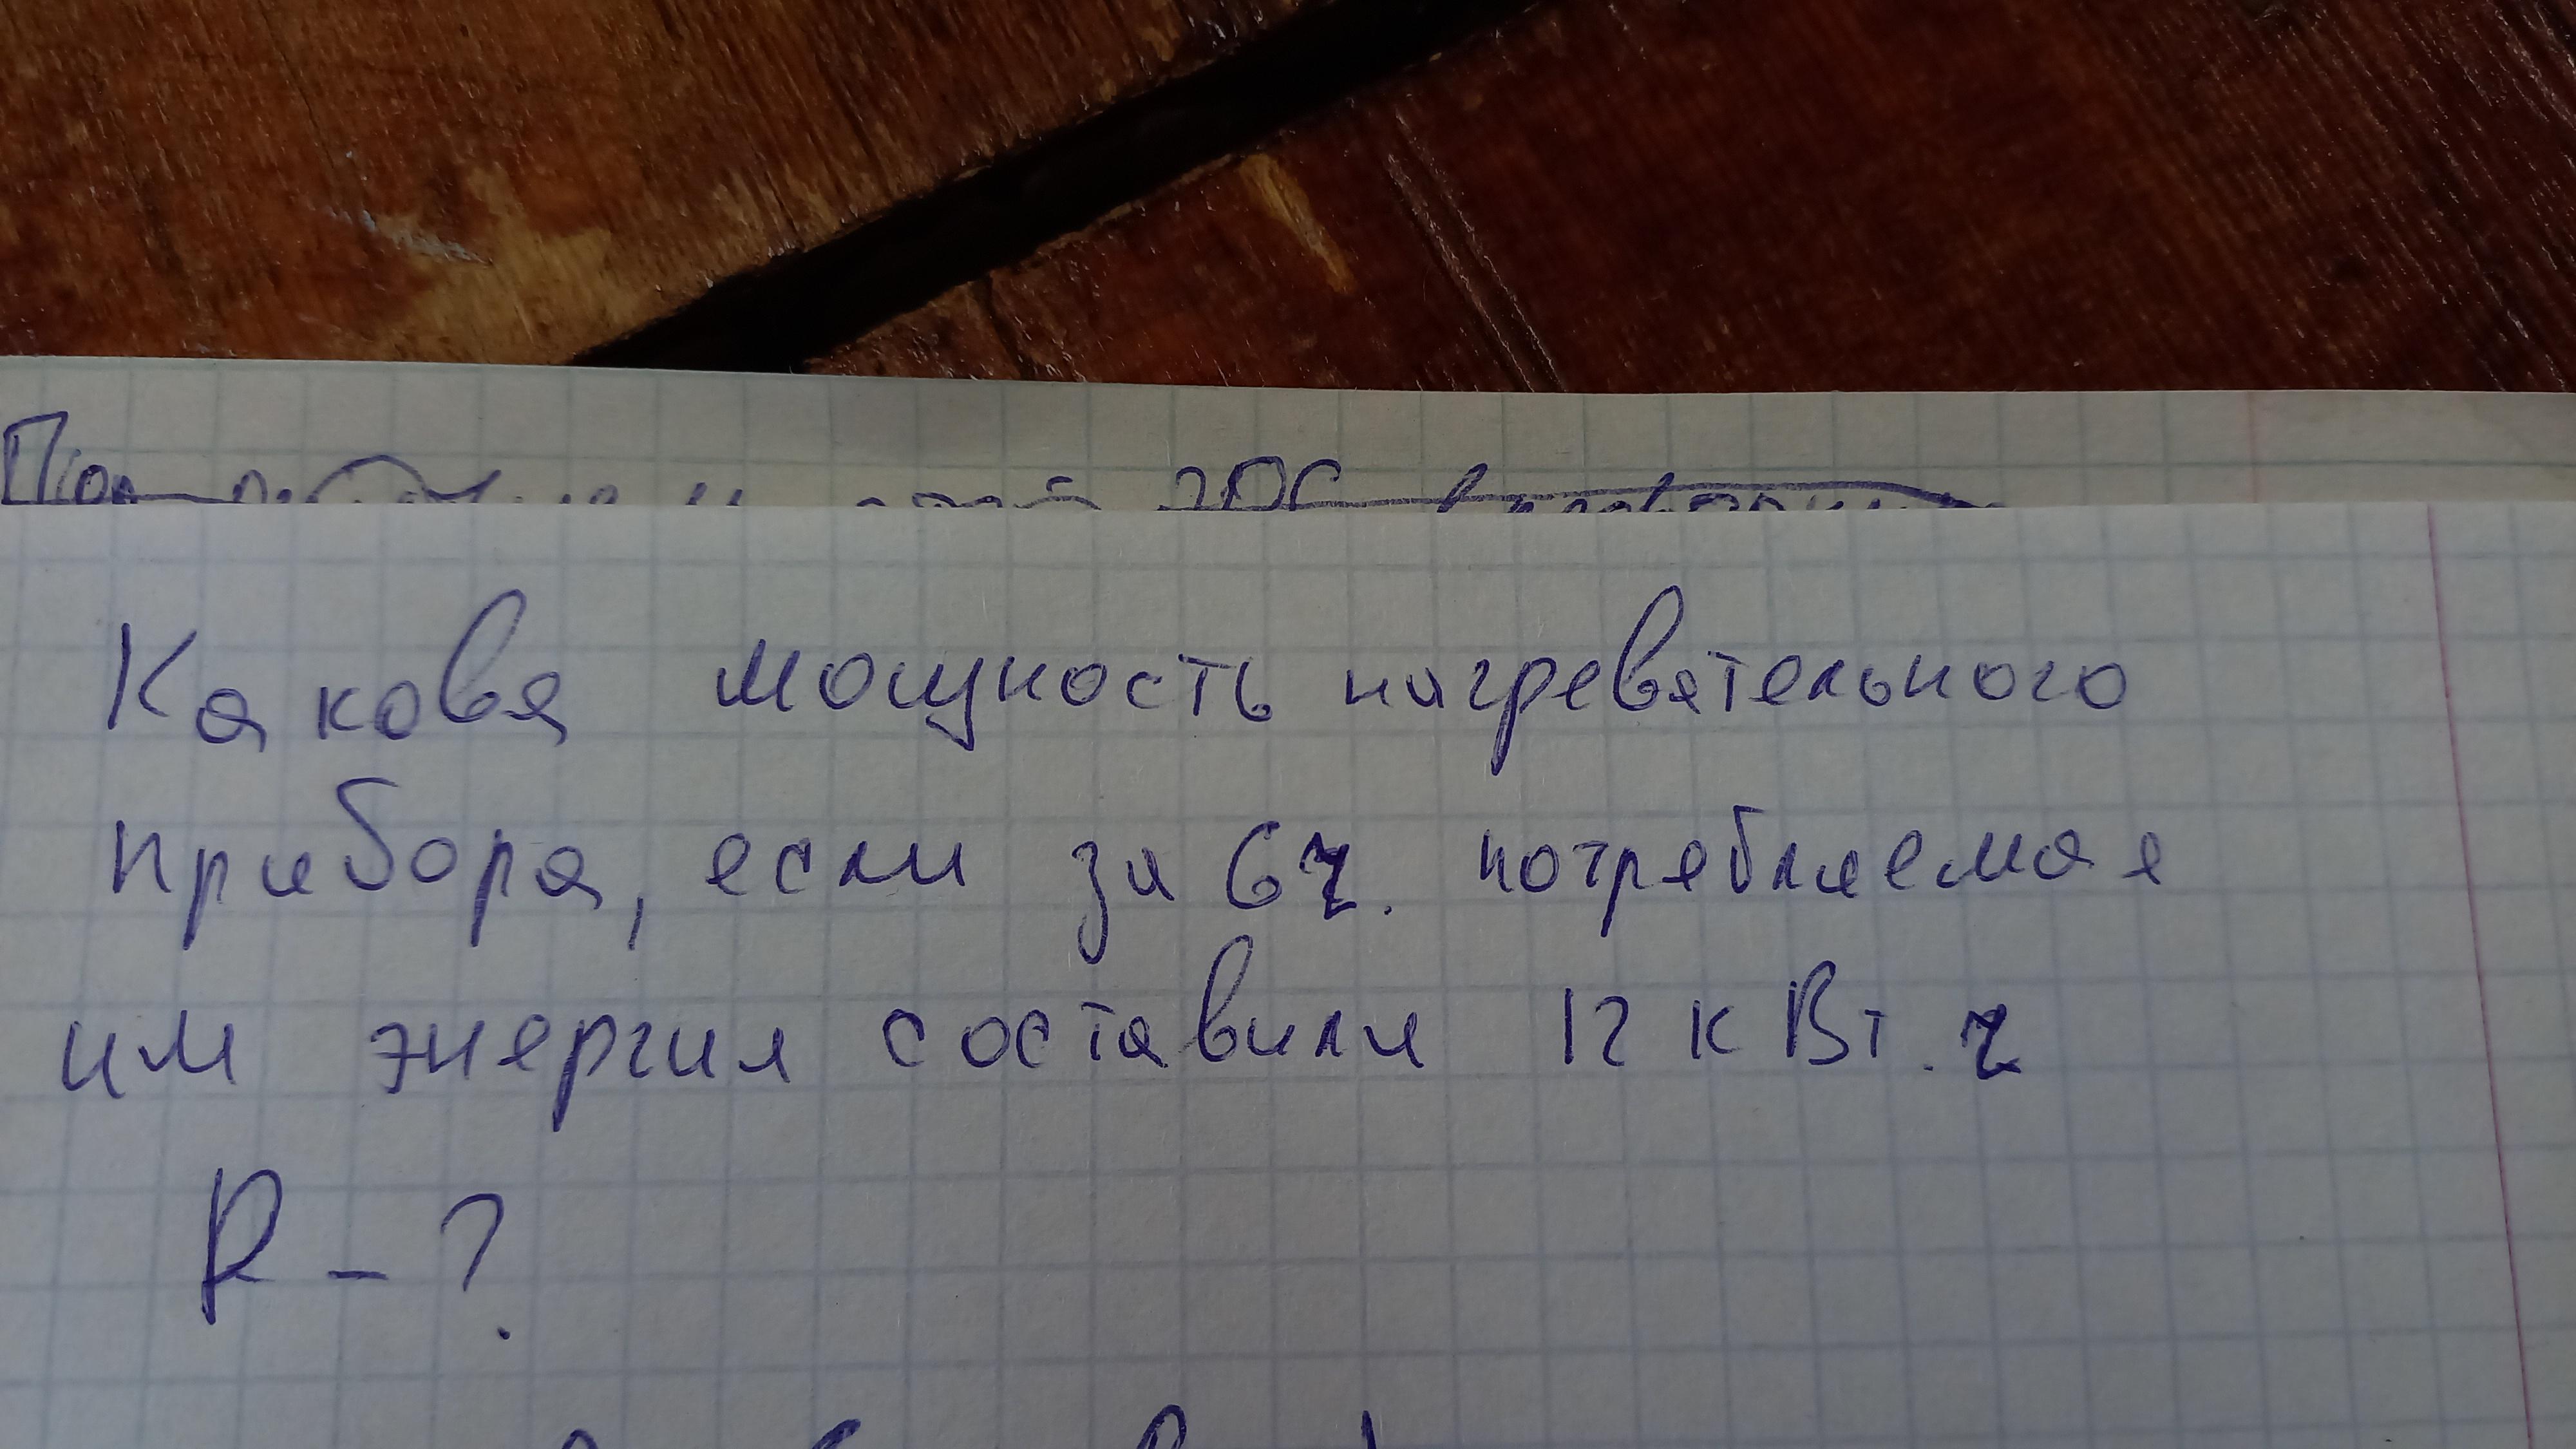 ЭДС
Какова мощность нагревательного
прибора, если за 6ч. потребляемая
им энергия составили 12 кВт.ч
P - ?